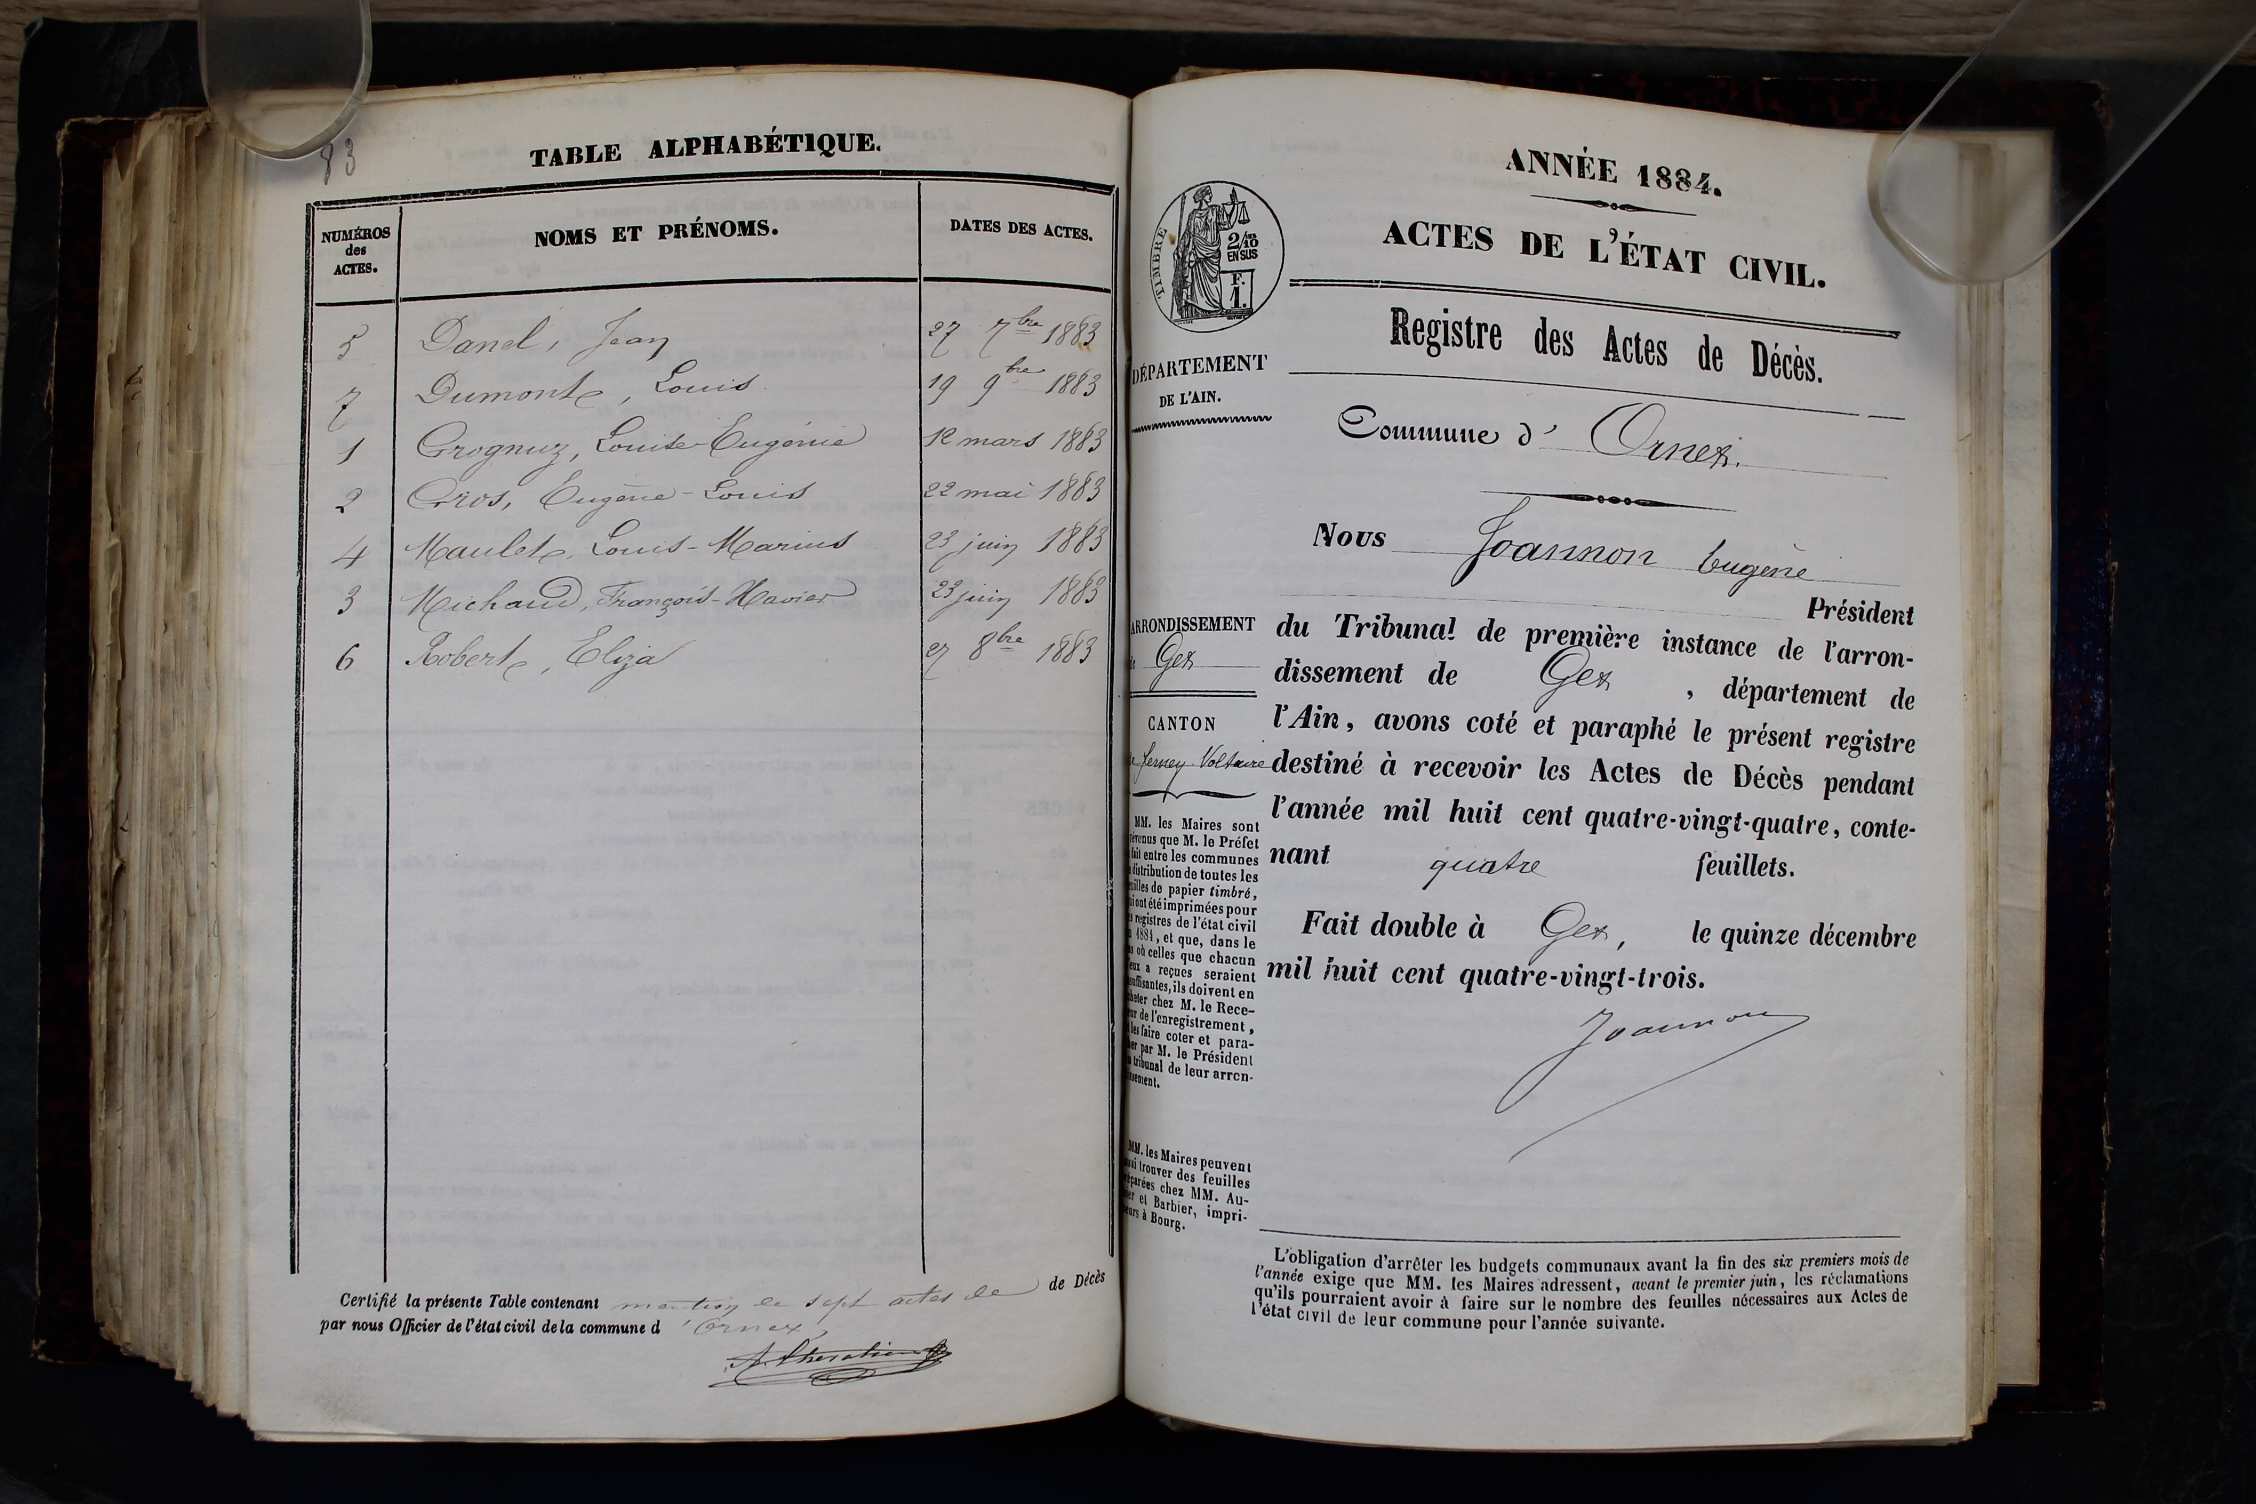 83
TABLE ALPHABÉTIQUE.
NUMÉROS
des
ACTES.
NOMS ET PRÉNOMS.
DATES DES ACTES.
5 Danel, Jean 27 7bre 1883
7 Dumont, Louis 19 9bre 1883
1 Grognuz, Louise-Eugénie 12 mars 1883
2 Gros, Eugène-Louis 22 mai 1883
4 Maulet, Louis-Marius 23 juin 1883
3 Michaud, François-Xavier 23 juin 1883
6 Robert, Eliza 27 8bre 1883
Certifié la présente Table contenant mention de sept actes de de Décès
par nous Officier de l'état civil de la commune d'Ornex,
ANNÉE 1884.
ACTES DE L'ÉTAT CIVIL.
TIMBRE
2/10
EN SUS
F.
1.
Registre des Actes de Décès.
DÉPARTEMENT
DE L'AIN.
Commune d'Ornex.
Nous Joannon Eugène
Président
ARRONDISSEMENT
Gex
CANTON
Ferney-Voltaire
du Tribunal de première instance de l'arron-
dissement de Gex, département de
l'Ain, avons coté et paraphé le présent registre
destiné à recevoir les Actes de Décès pendant
l'année mil huit cent quatre-vingt-quatre, conte-
nant quatre feuillets.
Fait double à Gex, le quinze décembre
mil huit cent quatre-vingt-trois.
Joannon
MM. les Maires sont
que M. le Préfet
fait entre les communes
distribution de toutes les
de papier timbré,
ont été imprimées pour
registres de l'état civil
1884, et que, dans le
où celles que chacun
a reçues seraient
ils doivent en
chez M. le Rece-
de l'enregistrement,
les faire coter et para-
par M. le Président
tribunal de leur arron-
MM. les Maires peuvent
trouver des feuilles
chez MM. Au-
et Barbier, impri-
à Bourg.
L'obligation d'arrêter les budgets communaux avant la fin des six premiers mois de
l'année exige que MM. les Maires adressent, avant le premier juin, les réclamations
qu'ils pourraient avoir à faire sur le nombre des feuilles nécessaires aux Actes de
l'état civil de leur commune pour l'année suivante.